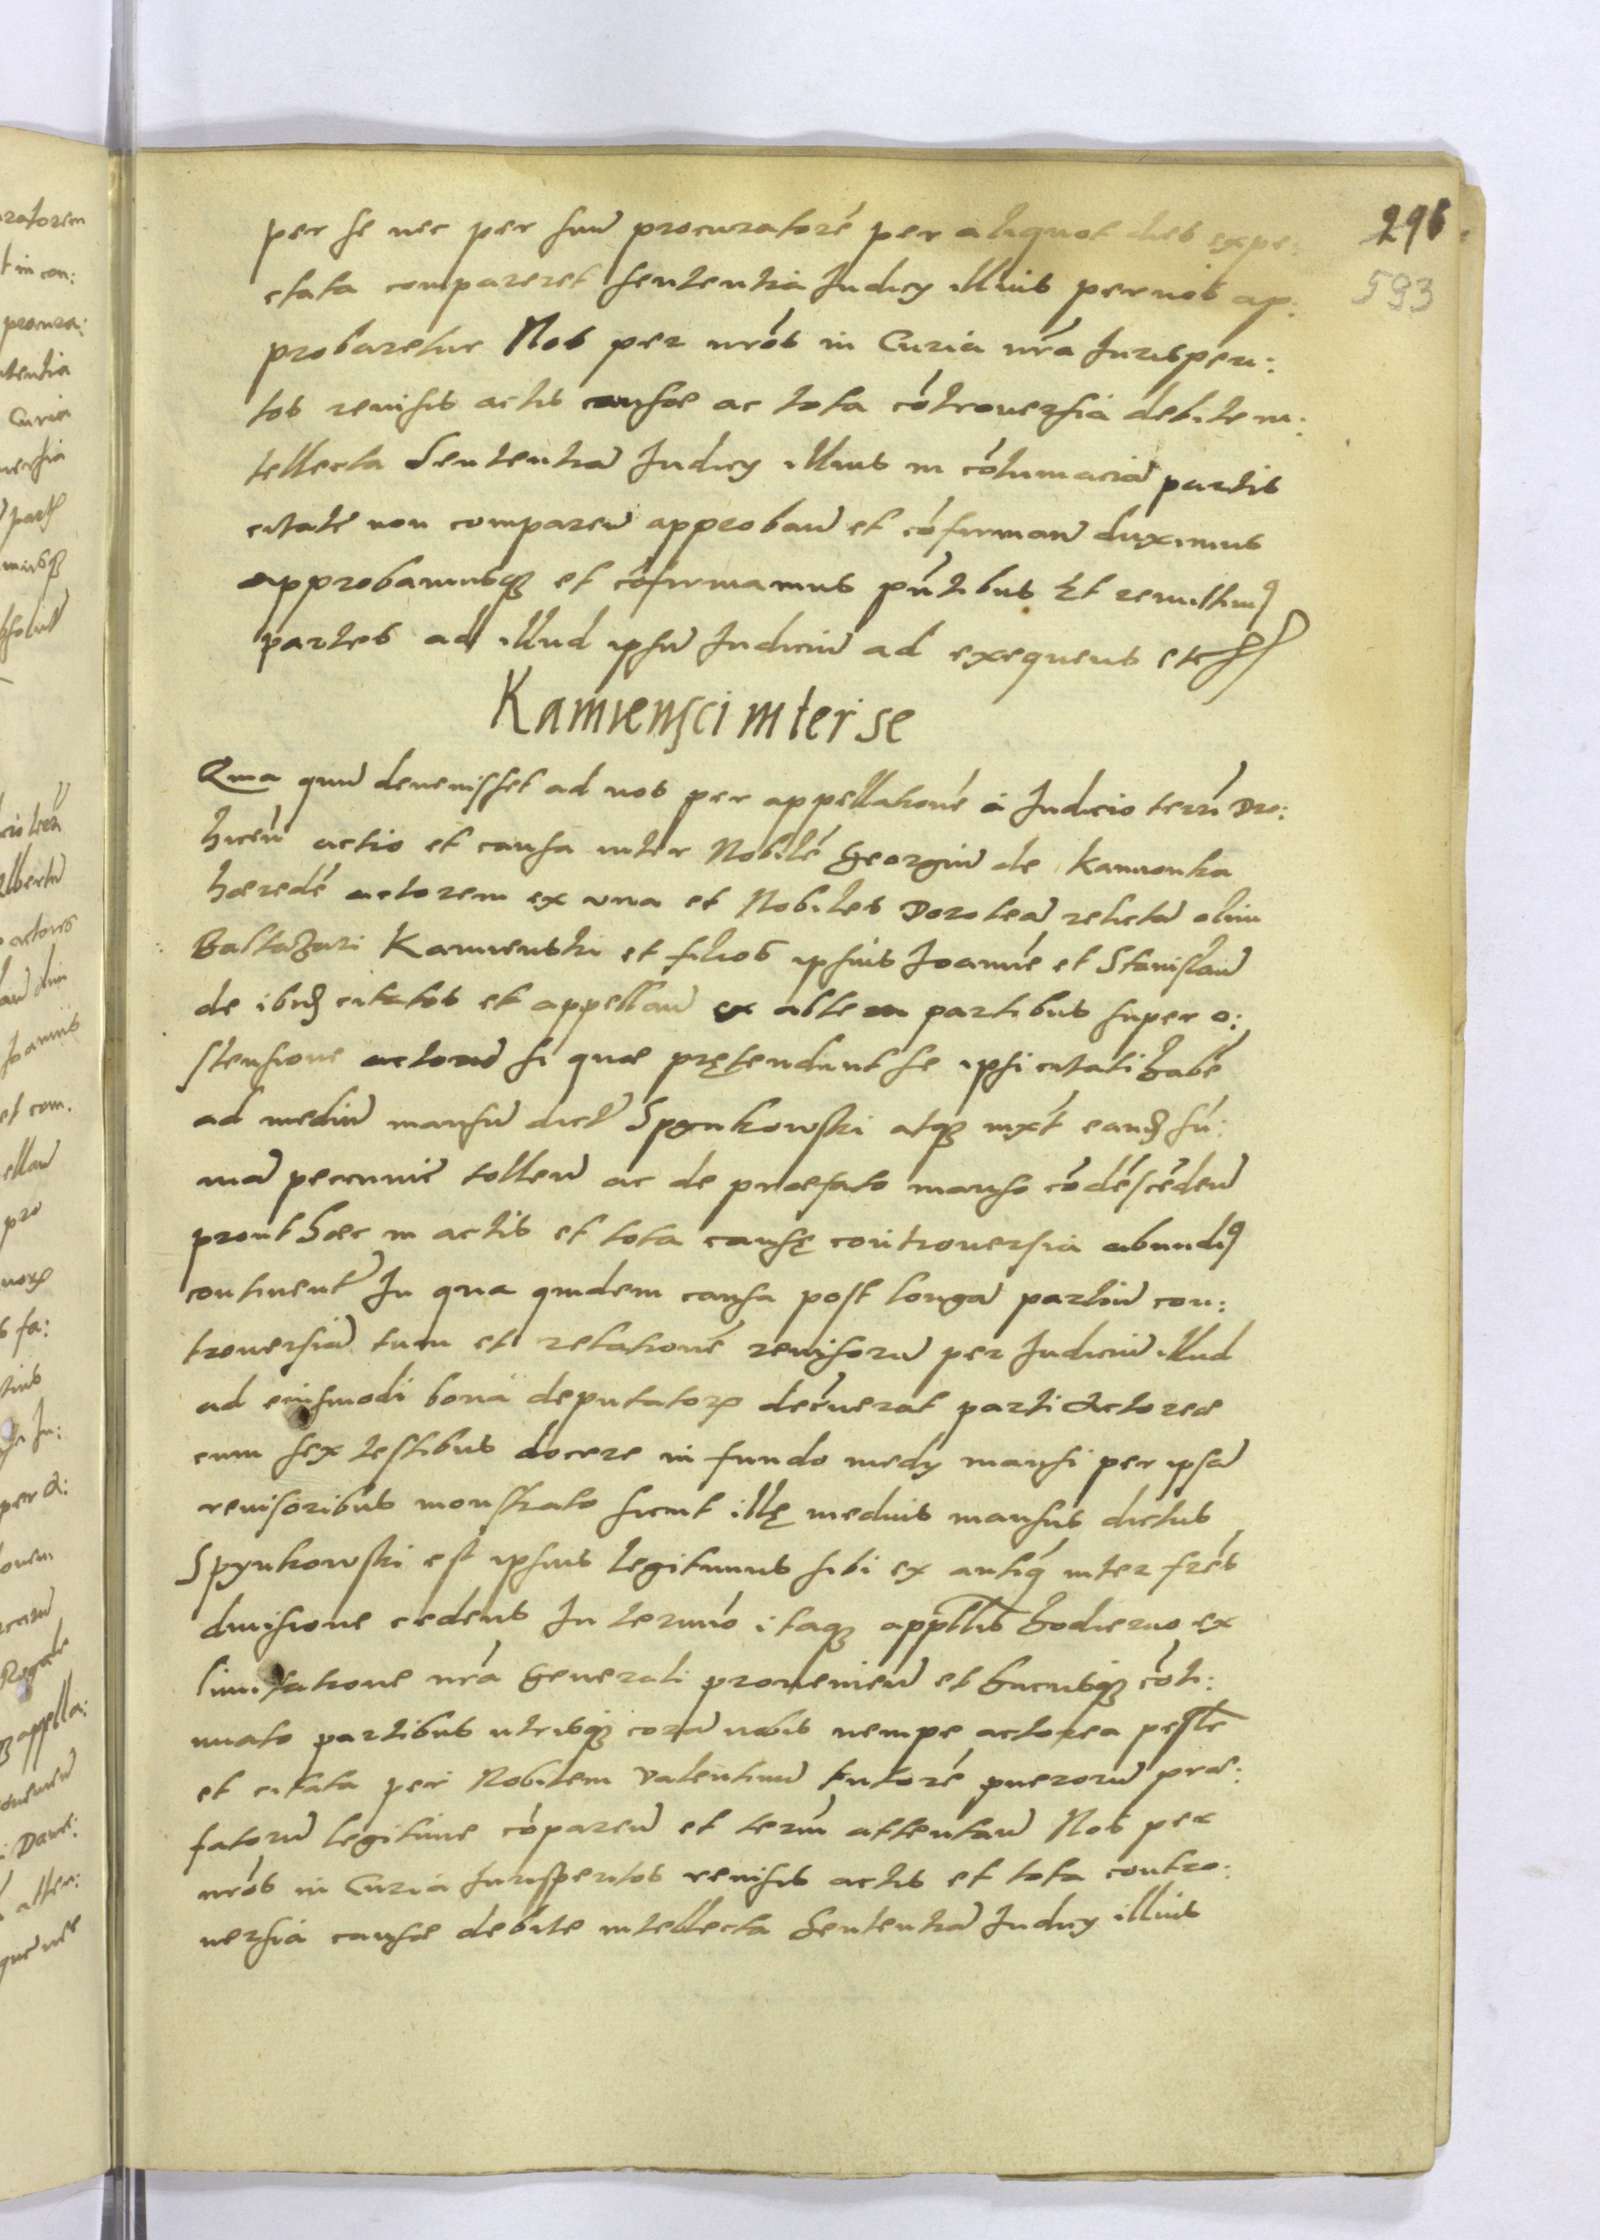 296
593
per se nec per suũ procuratorẽ per aliquot dies expe:
ctata compareret sententia Judicÿ illius per nos ap:
probaretur Nos per nrõs in Curia nrã Jurisperi:
tos revisis actis causæ ac tota cõtroversia debite in:
tellecta Sententiã Judicÿ illius in cõtumaciã partis
citatæ non comparen̄ approban̄ et cõfirman̄ duximus
approbamusq₃ et cõfirmamus pñtibus Et remittimꝰ
partes ad illud ipsũ Judiciũ ad exequens etc
Kamienscí inter se
Qma quũ devenisset ad nos per appellationẽ á Judicio terrĩ Dro:
hiceñ actio et causa inter Nobilẽ Georgiũ de Kamionka
hæredẽ actorem ex una et Nobiles Doroteã relictã olim
Baltazari Kamienski et filios ipsius Joannẽ et Stanislaũ
de ibid₃ citatos et appellan̄ ex altera partibus super o:
stensione actorũ si quæ prętendunt se ipsi citati habẽ
ad mediũ mansũ dict̃ Spynkowski atq₃ iuxt̃ eand₃ sũ:
mã pecuniæ tollen̄ ac de præfato manso cõdẽscẽden̄
prout hæc in actis et tota causę controversia abundꝰ
continent̃ In qua quidem causa post longã partiũ con:
troversiã tum et relationẽ revisorũ per Judiciũ illud
ad eiusmodi bona deputatorꝝ decreverat parti Actoreæ
cum sex testibus docere in fundo medÿ mansi per ipsã
revisoribus monstrato sicut illę medius mansus dictus
Spynkowski est ipsius legitimus sibi ex antiq̃ inter frẽs
divisione cedens In termio itaq₃ appllis hodierno ex
limitatione nrã Generali provenien̄ et hucusq₃ cõti:
nuato partibus utrisq₃ corã nobis nempe actorea pesttr̃
et citata per Nobilem Valentinũ tutorẽ puerorũ præ:
fatorũ legitime cõparen̄ et term̃ attentan̄ Nos per
nrõs in Curia Jurisperitos revisis actis et tota contro:
versia causæ debite intellecta Sententiã Judicÿ illius